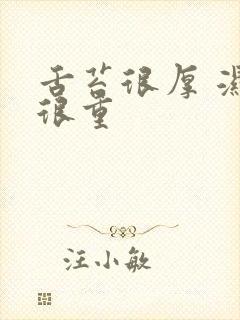 舌苔很厚 濕
很重
汪小敏